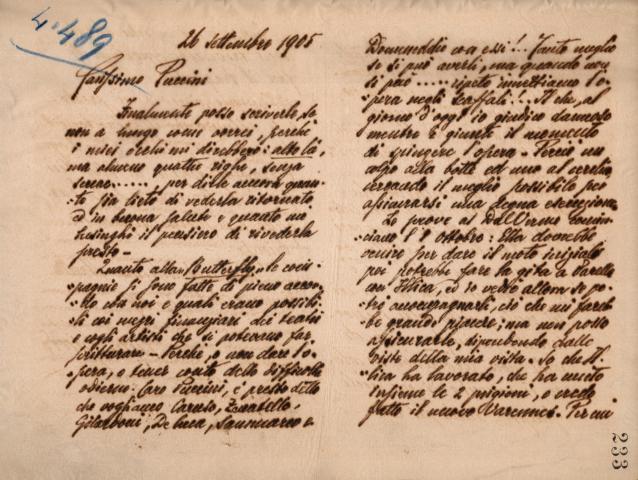 4.489
26 settembre 1905
Carissimo Puccini
Finalmente posso scriverle, se
non a lungo come vorrei, perché
i miei occhi mi direbbero: alto là,
ma almeno quattro righe, senza
..... per dirle ancora quan-
to sia lieto di vederla ritornato
ed in buona salute e quanto mi
lusinghi il pensiero di rivederla
presto -
Quanto alla "Butterfly" le com-
pagnie si sono fatte di pieno accor-
do che noi e quali erano possibi-
li coi mezzi finanziari dei teatri
e cogli artisti che si potevano far
scritturare - Perché, o non dare l'o-
pera, o tener conto delle difficoltà
odierne. Caro Puccini, è presto detto
che vogliamo Caruso, Zenatello,
Giraldoni, De Luca, Sammarco e
Domeneddio con essi!.. Tanto meglio
se si può averli, ma quando non
si può .... ripeto mettiamo l'o-
pera negli scaffali... Il che, al
giorno d'oggi io giudico dannoso
mentre è giunto il momento
di spingere l'opera - Perciò un
colpo alla botte ed uno al cerchio
cercando il meglio possibile per
assicurarsi una degna esecuzione.
Le prove al Dal Verme comin-
ciano l'8 ottobre: Ella dovrebbe
venire per dare il moto iniziale
poi potrebbe fare la gita a
con Illica, ed io vedrò allora se po-
trò accompagnarli, ciò che mi fareb-
be grande piacere; ma non posso
assicurarlo, dipendendo dallo
della mia vista. So che Il-
lica ha lavorato, che ha messo
insieme le 2 prigioni, e credo
fatto il nuovo Varennes. Per mi
233